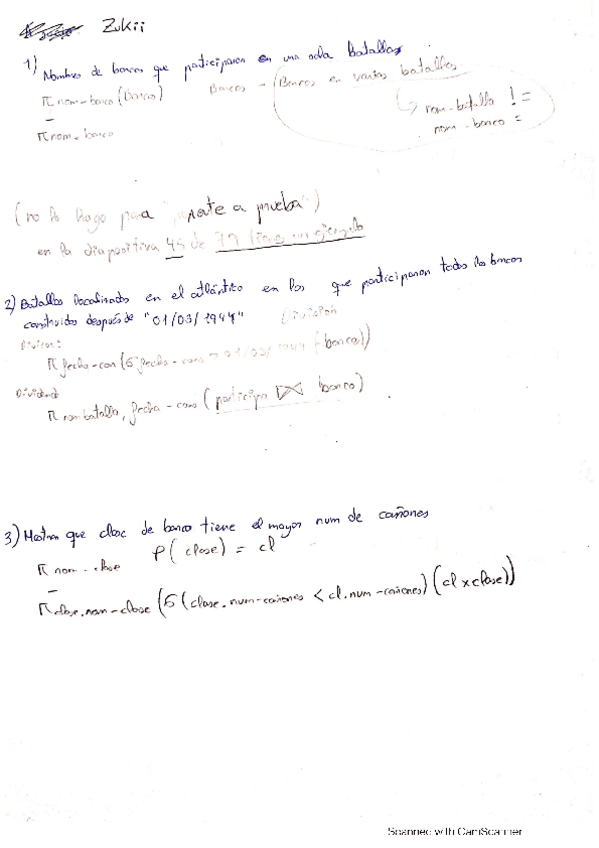 Zukii
1) Nombres de barcos que participaron en una sola Batallas
π nom-barco (Barco)
Barcos - Barcos en varias batallas
nom-batalla !=
nom-barco =
-
π nom-barco
(no lo hago para a prueba")
en la diapositiva 45 de 79 tienes un ejemplo
2) Batallas localizadas en el atlántico en los que participaron todos los barcos
construidos después de "01/03/1944" División
Divisor:
π fecha-con (σ fecha-cons > 01/03/1944 (barco))
Dividend
π nombatalla, fecha-cons (participa ⋈ barco)
3) Mostrar que clase de barco tiene el mayor num de cañones
π nom-clase
ρ(clase) = cl
-
π clase.nom-clase (σ (clase.num-cañones < cl.num-cañones) (cl x clase))
Scanned with CamScanner